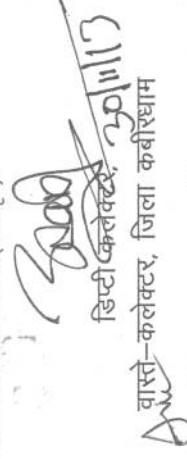 डिप्टी कलेक्टर, 30/11/13
वास्ते-कलेक्टर, जिला कबीरधाम